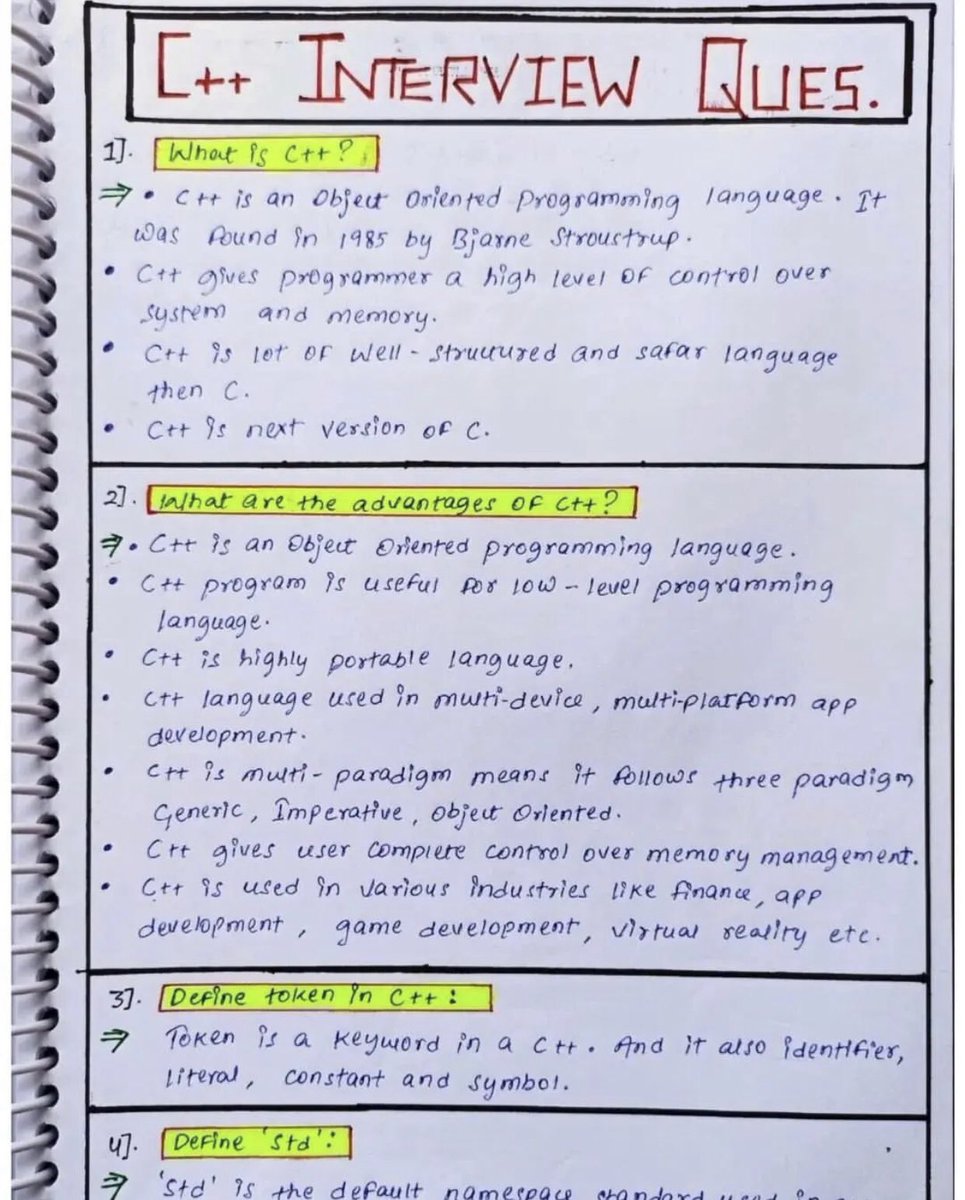 C++ INTERVIEW QUES.
1]. What is C++?
⇒ • C++ is an Object Oriented programming language. It
was found in 1985 by Bjarne Stroustrup.
• C++ gives programmer a high level of control over
system and memory.
• C++ is lot of well-structured and safar language
then C.
• C++ is next version of C.
2]. What are the advantages of C++?
⇒ • C++ is an Object Oriented programming language.
• C++ program is useful for low-level programming
language.
• C++ is highly portable language.
• C++ language used in multi-device, multi-platform app
development.
• C++ is multi-paradigm means it follows three paradigm
Generic, Imperative, Object Oriented.
• C++ gives user complete control over memory management.
• C++ is used in various industries like finance, app
development, game development, virtual reality etc.
3]. Define token in C++:
⇒ Token is a keyword in a C++. And it also identifier,
literal, constant and symbol.
4]. Define 'std':
⇒ 'Std' is the default namespace standard used in